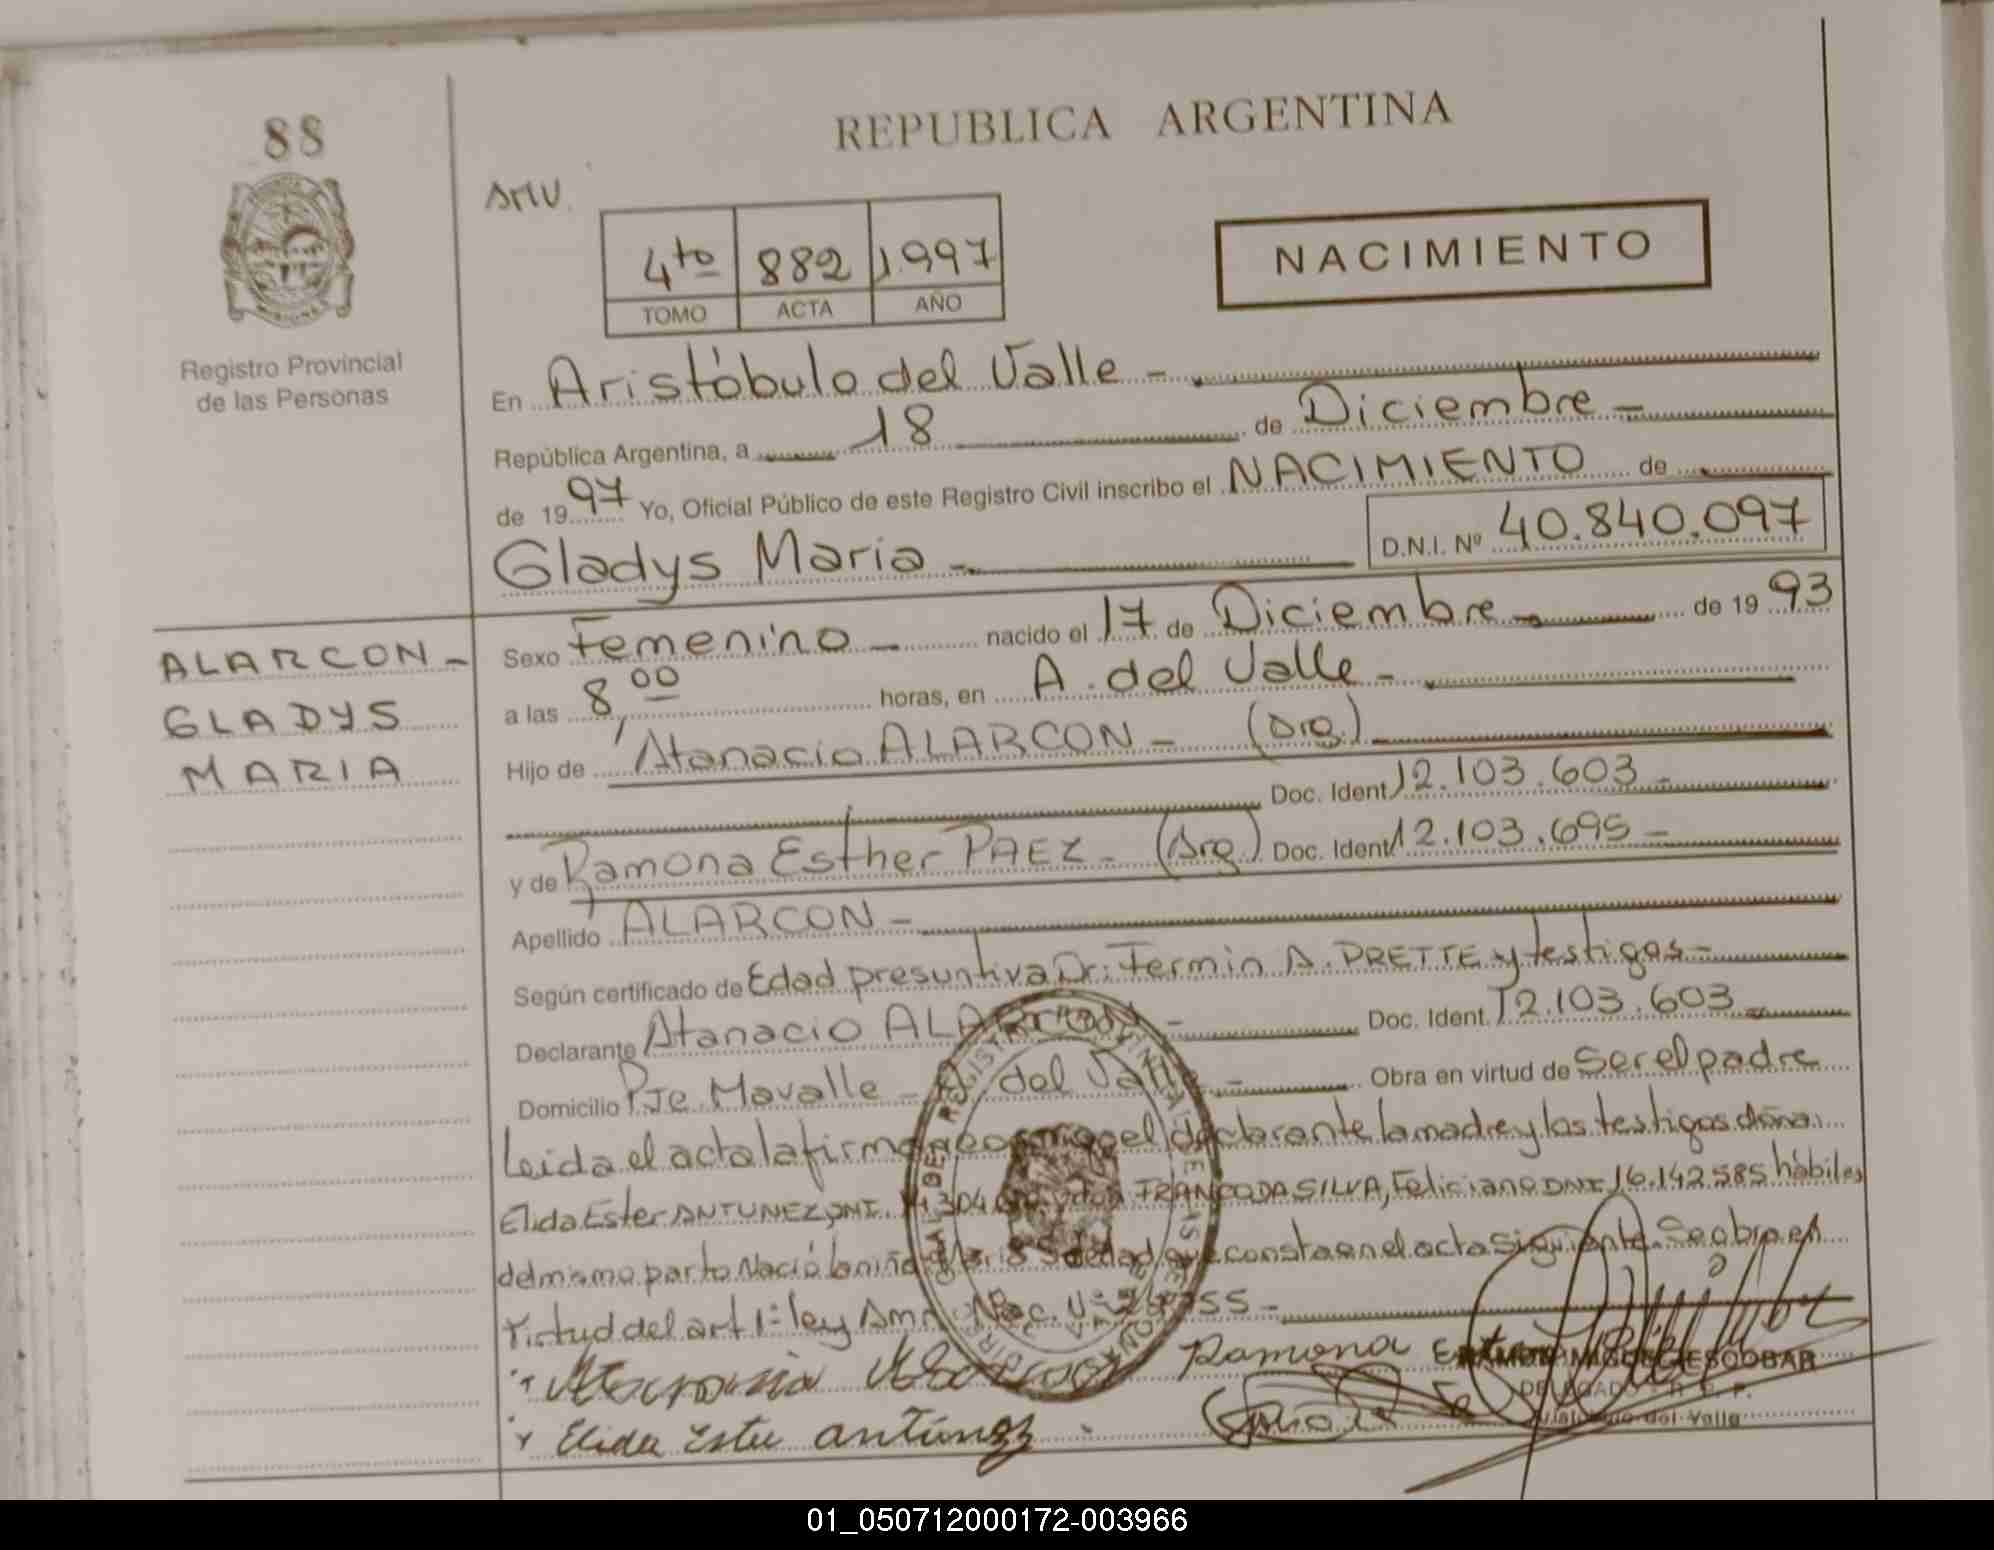 88
REPUBLICA ARGENTINA
NACIMIENTO
4to 882 1.997
TOMO ACTA AÑO
Registro Provincial
de las Personas
En Aristóbulo del Valle -
República Argentina, a 18 de Diciembre -
de 1997 Yo, Oficial Público de este Registro Civil inscribo el NACIMIENTO de
Gladys Maria - D.N.I. Nº 40.840.097
ALARCON -
GLADYS
MARIA
Sexo Femenino - nacido el 17 de Diciembre - de 1993
a las 8,00 horas, en A. del Valle -
Hijo de Atanacio ALARCON - (Arg.)
Doc. Ident 12.103.603 -
y de Ramona Esther PAEZ - (Arg.) Doc. Ident 12.103.695 -
Apellido ALARCON -
Según certificado de Edad presuntiva Dr: Fermin A. PRETTE y testigos -
Declarante Atanacio ALARCON - Doc. Ident. 12.103.603 -
Domicilio Pje. Mavalle - A. del Valle - Obra en virtud de Ser el padre
Leida el acta la firman conmigo el declarante la madre y los testigos doña:
Elida Ester ANTUNEZ, DNI. FRANCO DA SILVA, Feliciano DNI 16.142.585 hábiles
del mismo parto Nació la niña que consta en el acta siguiente. Se labra en
virtud del art 1= ley
Ramona
Elida Ester antúnez
RAMON MIGUEL ESCOBAR
DELEGADO R. C. P.
Aristóbulo del Valle
01_050712000172-003966